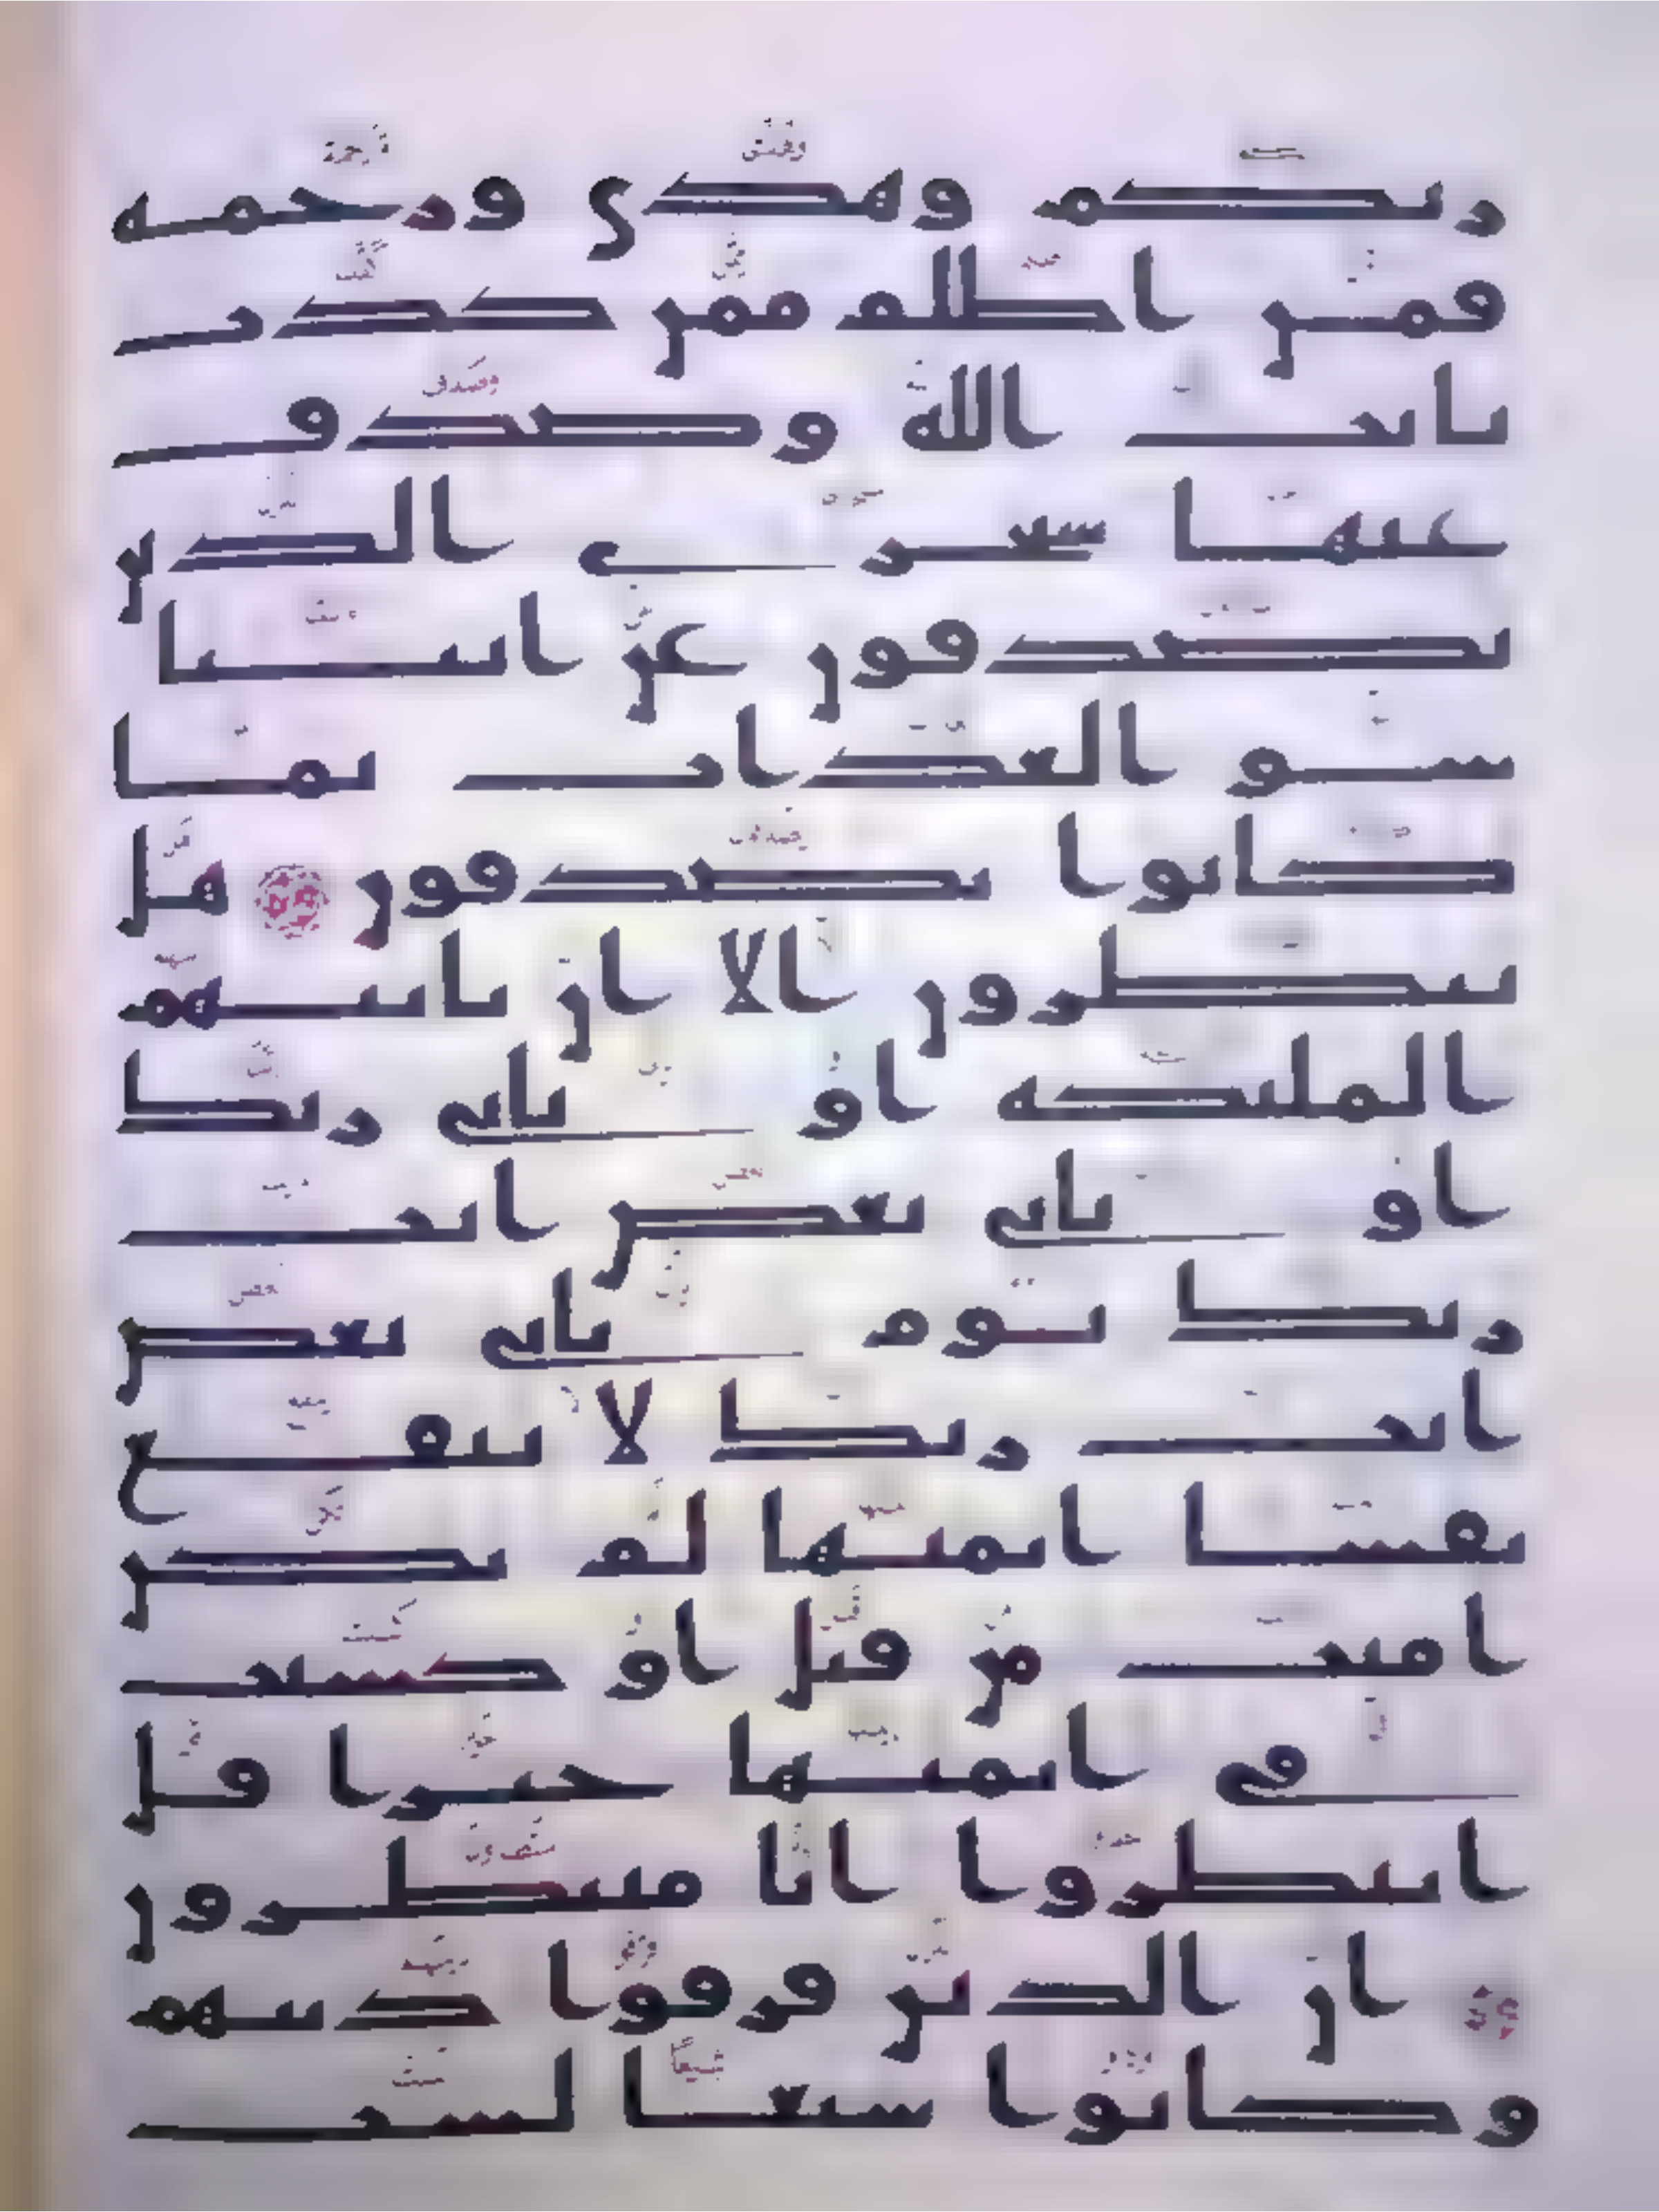 ربكم وهدى ورحمه
فمن اظلم ممن كذب
بايت الله وصدف
عنها سنجزى الذين
يصدفون عن ايتنا
سو العذاب بما
كانوا يصدفون هل
ينظرون الا ان تاتيهم
الملئكه او ياتى ربك
او ياتى بعض ايت
ربك يوم ياتى بعض
ايت ربك لا ينفع
نفسا ايمنها لم تكن
امنت من قبل او كسبت
فى ايمنها خيرا قل
انتظروا انا منتظرون
ان الذين فرقوا دينهم
وكانوا شيعا لست